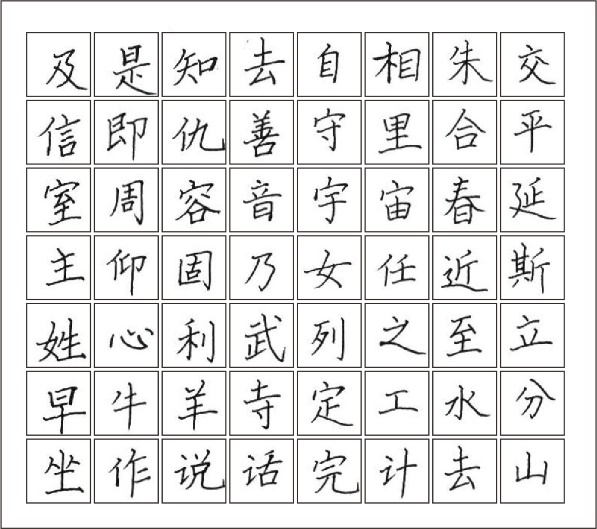 及是知去自相朱交
信即仇善守里合平
室周容音宇宙春延
主仰固乃女任近斯
姓心利武列之至立
早牛羊寺定工水分
坐作说话完计去山